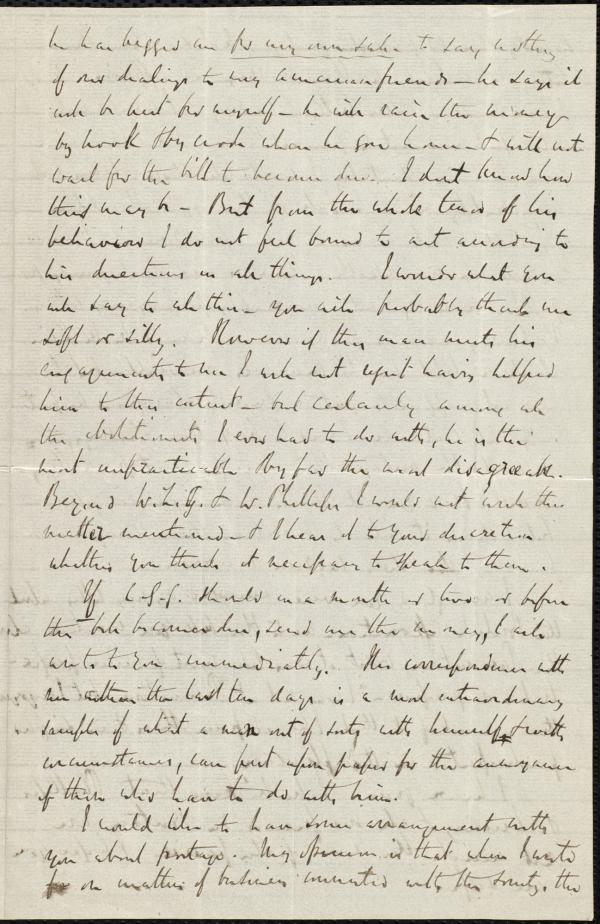 he has begged me for my own sake to say nothing
of our dealings to my American friends – he says it
will be best for myself – he will raise the money
by hook & by crook when he goes home – & will not
wait for the bill to become due. I don't know how
this may be – But from the whole tenor of his
behaviour I do not feel bound to act according to
his directions in all things. I wonder what you
will say to all this – you will probably think me
soft or silly. However if this man meets his
engagements to me I will not regret having helped
him to this extent – but certainly among all
the abolitionists I ever had to do with, he is the
most unpracticable & by far the most disagreeable.
Beyond W.L.G. & W. Phillips I would not wish this
matter mentioned – & I leave it to your discretion
whether you think it necessary to speak to them.
If C.S.G. should in a month or two or before
the bill becomes due, send me the money, I will
write to you immediately. His correspondence with
me within the last ten days is a most extraordinary
sample of what a man out of sorts with himself & with
circumstances, can put upon paper for the annoyance
of those who have to do with him.
I would like to have some arrangement with
you about postage. My opinion is that when I write
on matters of business connected with the Society, the